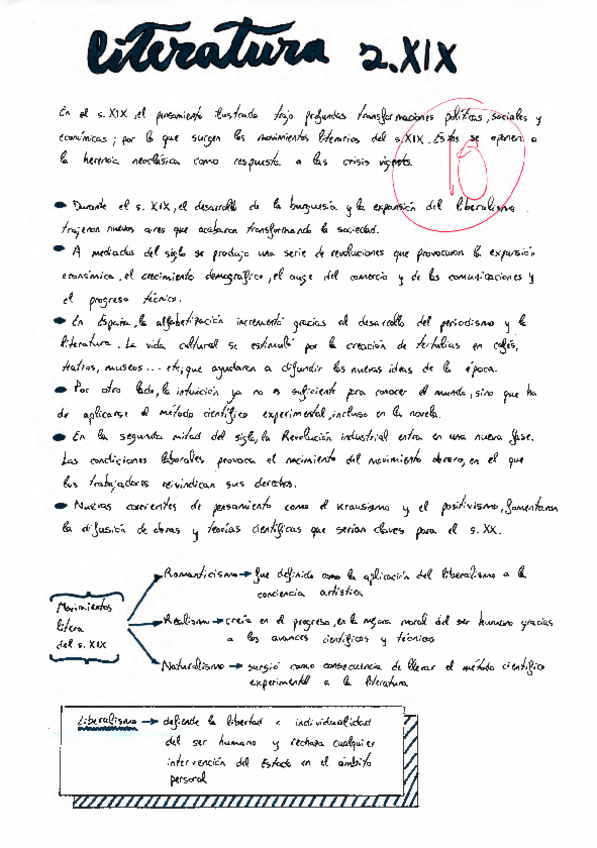 literatura s.XIX
En el s.XIX, el pensamiento ilustrado trajo profundas transformaciones políticas, sociales y
económicas; por lo que surgen los movimientos literarios del s.XIX. Estos se oponen a
la herencia neoclásica como respuesta a las crisis vigentes.
10
Durante el s. XIX, el desarrollo de la burguesía y la expansión del liberalismo
trajeron nuevos aires que acabaron transformando la sociedad.
A mediados del siglo se produjo una serie de revoluciones que provocaron la expansión
económica, el crecimiento demográfico, el auge del comercio y de las comunicaciones y
el progreso técnico.
En España, la alfabetización incrementó gracias al desarrollo del periodismo y la
literatura. La vida cultural se estimuló por la creación de tertulias en cafés,
teatros, museos... etc, que ayudaron a difundir las nuevas ideas de la época.
Por otro lado, la intuición ya no es suficiente para conocer el mundo, sino que ha
de aplicarse el método científico experimental, incluso en la novela.
En la segunda mitad del siglo, la Revolución industrial entra en una nueva fase.
Las condiciones laborales provoca el nacimiento del movimiento obrero, en el que
los trabajadores reivindican sus derechos.
Nuevas corrientes de pensamiento como el krausismo y el positivismo, fomentaron
la difusión de obras y teorías científicas que serían claves para el s. XX.
Movimientos
litera
del s. XIX
Romanticismo → fue definido como la aplicación del liberalismo a la
conciencia artística
Realismo → creía en el progreso, en la mejora moral del ser humano gracias
a los avances científicos y técnicos
Naturalismo → surgió como consecuencia de llevar el método científico
experimental a la literatura
Liberalismo → defiende la libertad e individualidad
del ser humano y rechaza cualquier
intervención del Estado en el ámbito
personal